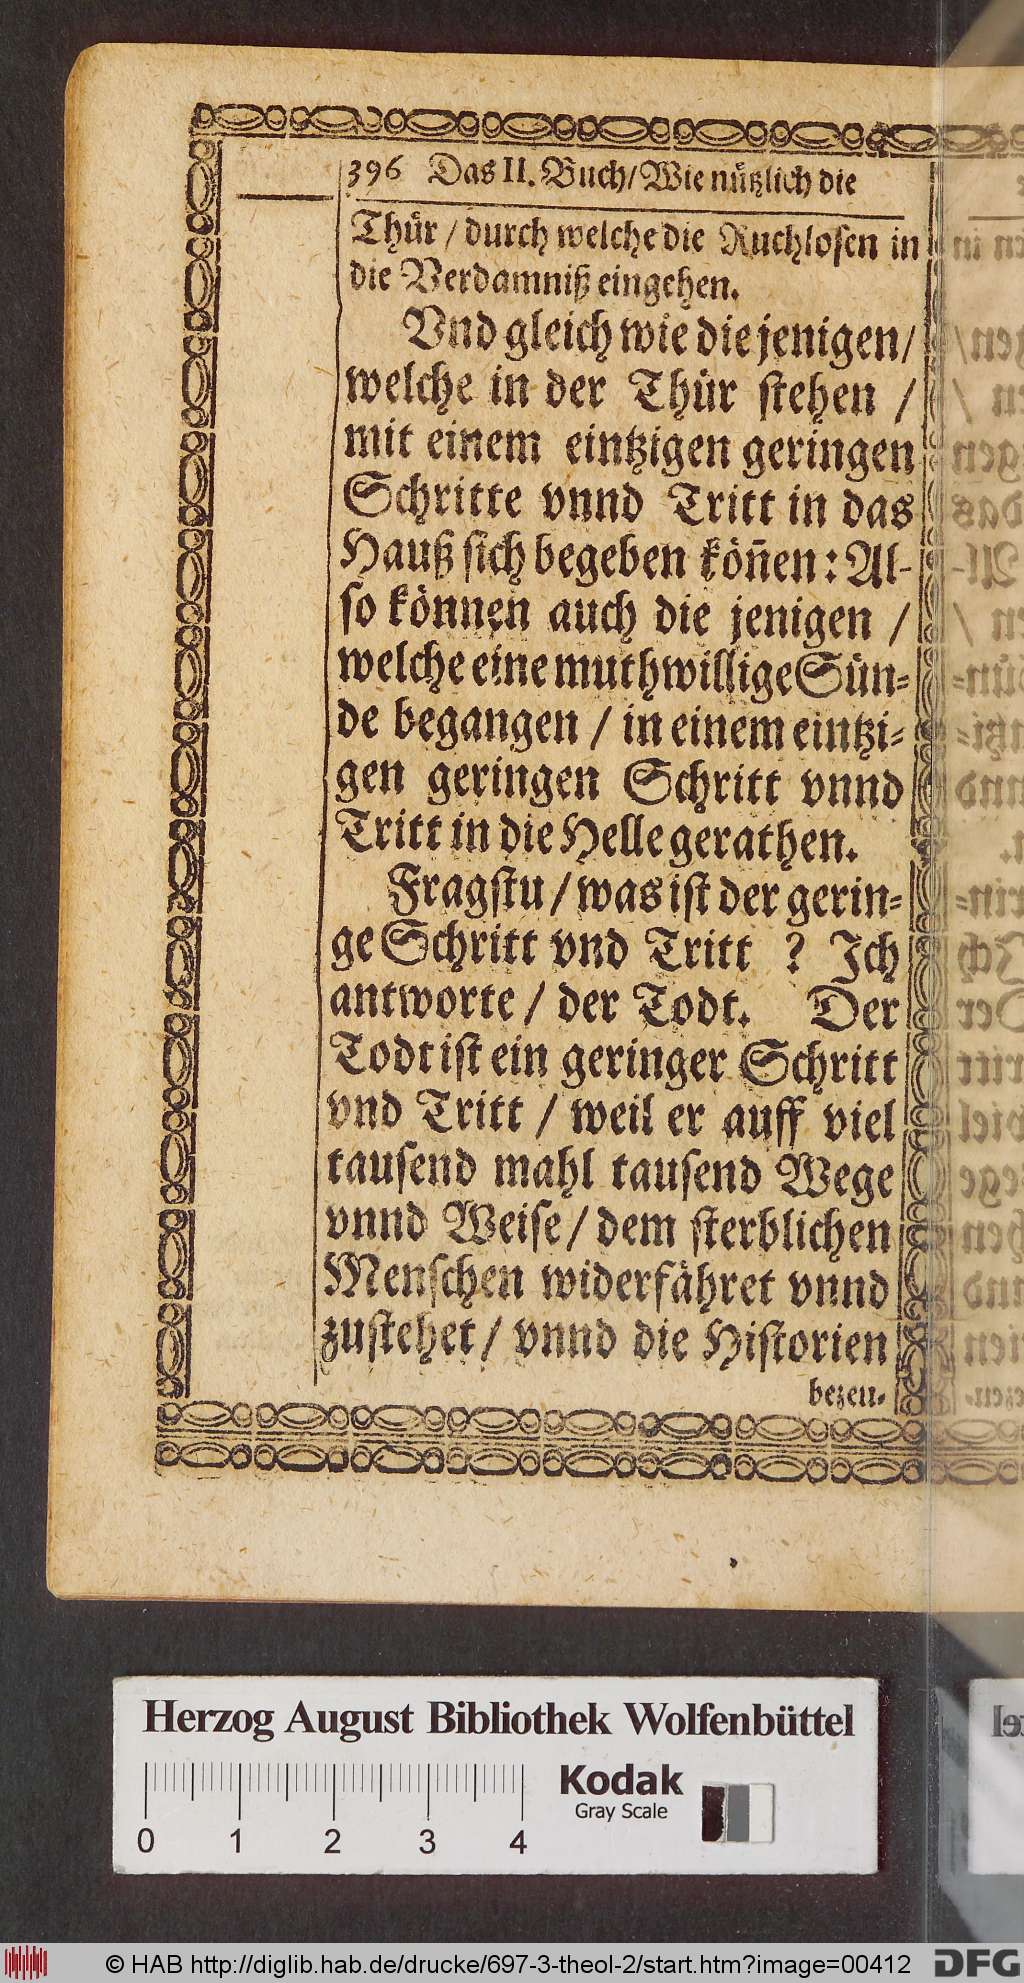 396 Das II. Buch/ Wie nützlich die
Thür / durch welche die Ruchlosen in
die Verdamniß eingehen.
Vnd gleich wie die jenigen/
welche in der Thür stehen /
mit einem eintzigen geringen
Schritte vnnd Tritt in das
Hauß sich begeben köñen: Al-
so können auch die jenigen /
welche eine muthwillige Sün-
de begangen / in einem eintzi-
gen geringen Schritt vnnd
Tritt in die Helle gerathen.
Fragstu / was ist der gerin-
ge Schritt vnd Tritt ? Ich
antworte / der Todt. Der
Todt ist ein geringer Schritt
vnd Tritt / weil er auff viel
tausend mahl tausend Wege
vnnd Weise / dem sterblichen
Menschen widerfähret vnnd
zustehet / vnnd die Historien
bezeu-
Herzog August Bibliothek Wolfenbüttel
Kodak
Gray Scale
0 1 2 3 4
© HAB http://diglib.hab.de/drucke/697-3-theol-2/start.htm?image=00412
DFG